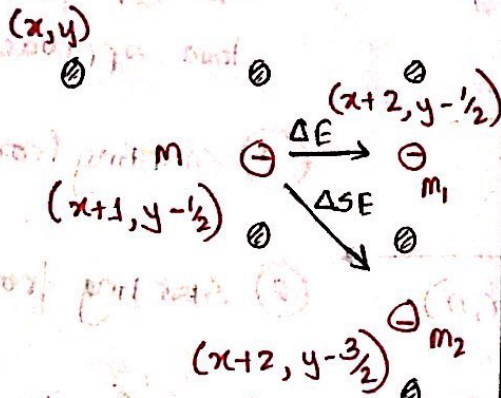 (x,y)
(x+2, y-1/2)
M
ΔE
(x+1, y-1/2)
m₁
ΔSE
m₂
(x+2, y-3/2)